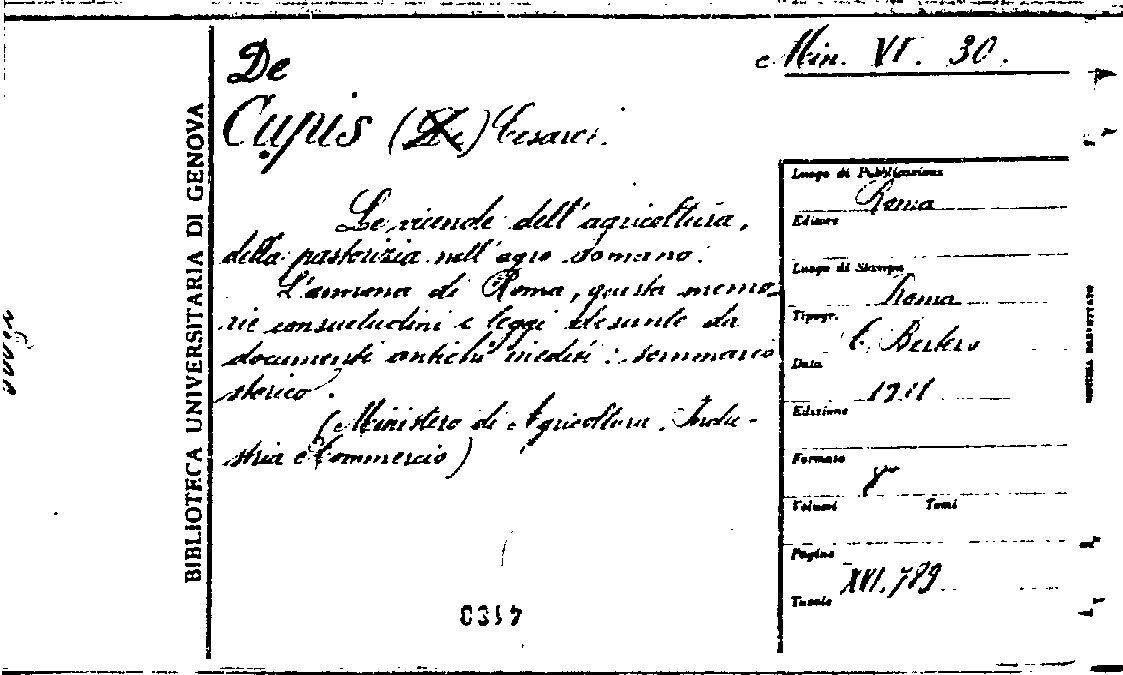 Min. VI. 30.
De
Cupis (De) Cesare.
BIBLIOTECA UNIVERSITARIA DI GENOVA
Le vicende dell'agricoltura,
della pastorizia nell'agro romano.
L'annona di Roma, giusta memo-
rie consuetudini e leggi desunte da
documenti antichi inediti: sommario
storico.
(Ministero di Agricoltura, Indu-
stria e Commercio)
Luogo di Pubblicazione
Roma
Editore
Luogo di Stampa
Roma
Tipogr.
E. Bertero
Data
1911
Edizione
Formato
8°
Volumi Tomi
Pagine
XVI, 789
Tavole